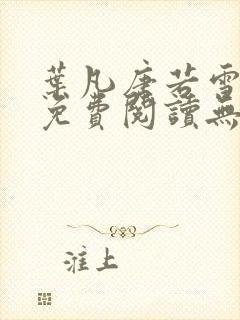 葉凡唐若雪
免費閱讀無
淮上